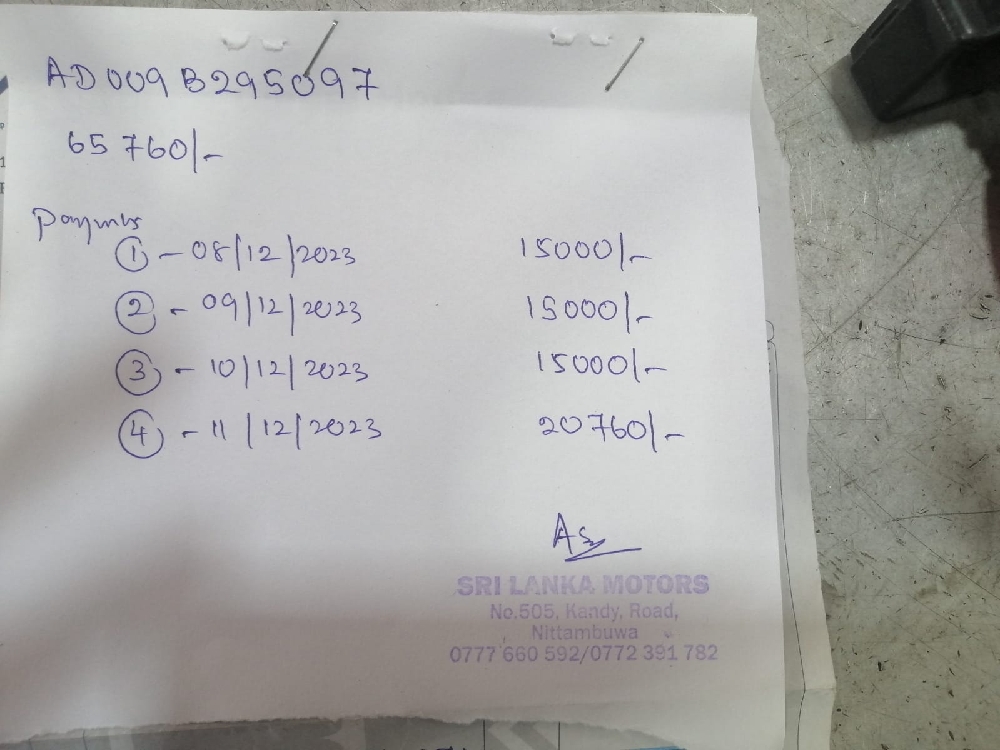 AD009B295097
65760/-
Payments
① - 08/12/2023 15000/-
② - 09/12/2023 15000/-
③ - 10/12/2023 15000/-
④ - 11/12/2023 20760/-
SRI LANKA MOTORS
No.505, Kandy, Road,
Nittambuwa
0777 660 592/0772 391 782